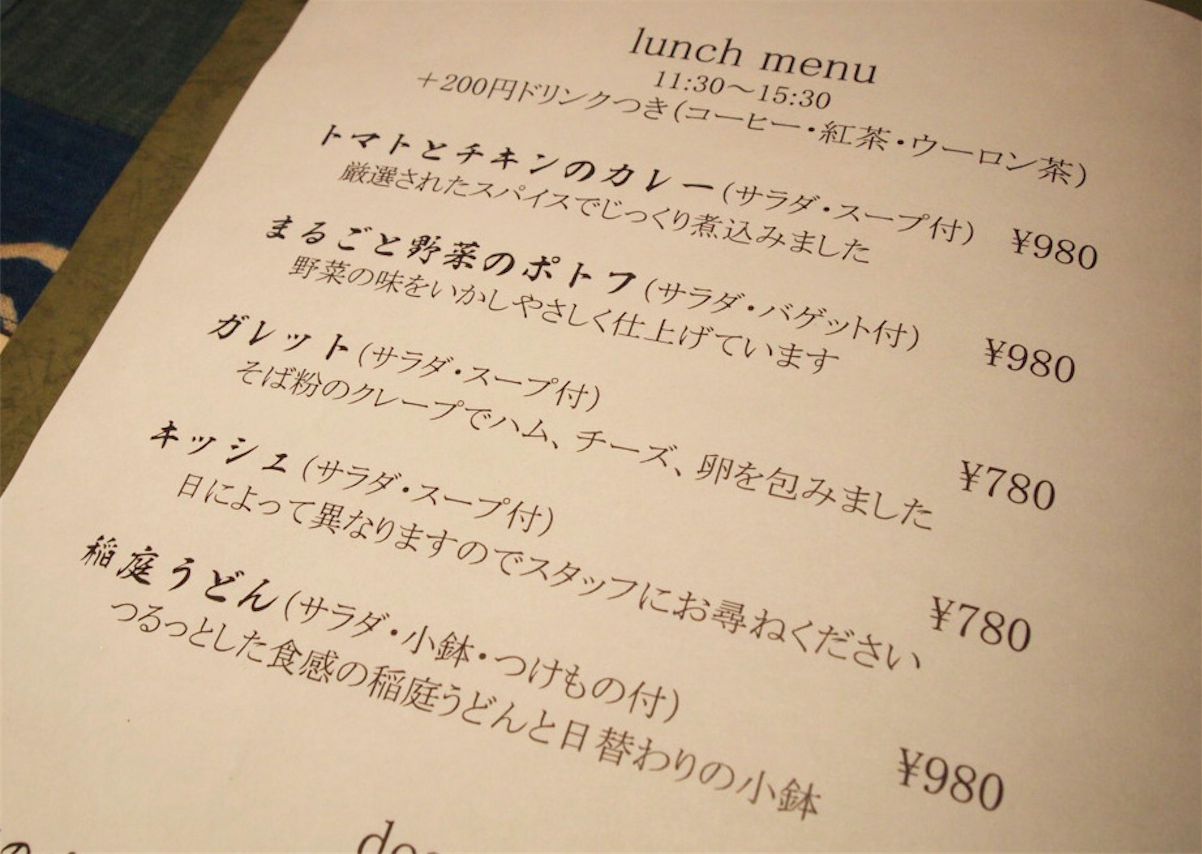 lunch menu
11:30～15:30
＋200円ドリンクつき(コーヒー・紅茶・ウーロン茶)
トマトとチキンのカレー(サラダ・スープ付) ¥980
厳選されたスパイスでじっくり煮込みました
まるごと野菜のポトフ(サラダ・バゲット付) ¥980
野菜の味をいかしやさしく仕上げています
ガレット(サラダ・スープ付) ¥780
そば粉のクレープでハム、チーズ、卵を包みました
キッシュ(サラダ・スープ付) ¥780
日によって異なりますのでスタッフにお尋ねください
稲庭うどん(サラダ・小鉢・つけもの付) ¥980
つるっとした食感の稲庭うどんと日替わりの小鉢